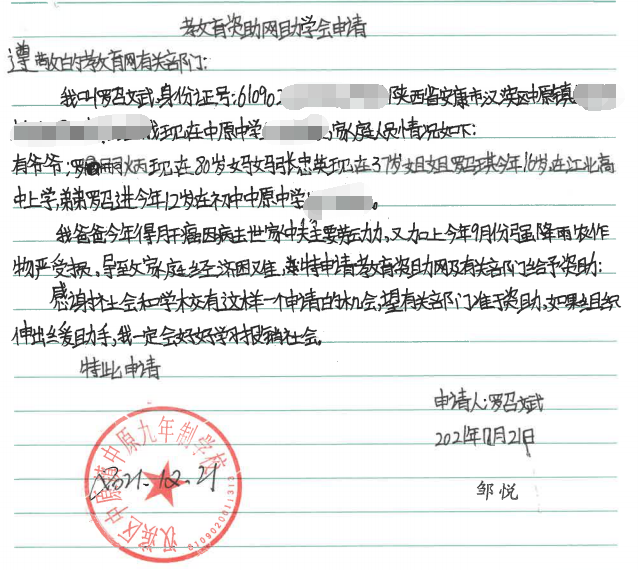 教育资助网助学会申请
遵敬的教育网有关部门:
我叫罗召斌,身份证号:610902 陕西省安康市汉滨区中原镇
现在中原中学 家庭人员情况如下:
有爷爷:罗 炳现在80岁妈妈张忠英现在37岁姐姐罗召琪今年16岁,在江北高
中上学,弟弟罗召进今年12岁在初中中原中学 。
我爸爸今年得月干癌因病去世家中失主要劳动力,又加上今年9月份强降雨农作
物严受损,导至文家庭经济困难,特申请教育资助网及有关部门给予资助:
感谢社会和学校有这样一个申请的机会,望有关部门准于资助,如果组织
伸出缓助手,我一定会好好学习报销社会。
特此申请
申请人:罗召斌
2021年12月21日
邹悦
汉滨区中原镇中原九年制学校
2021.12.21
6109020011313